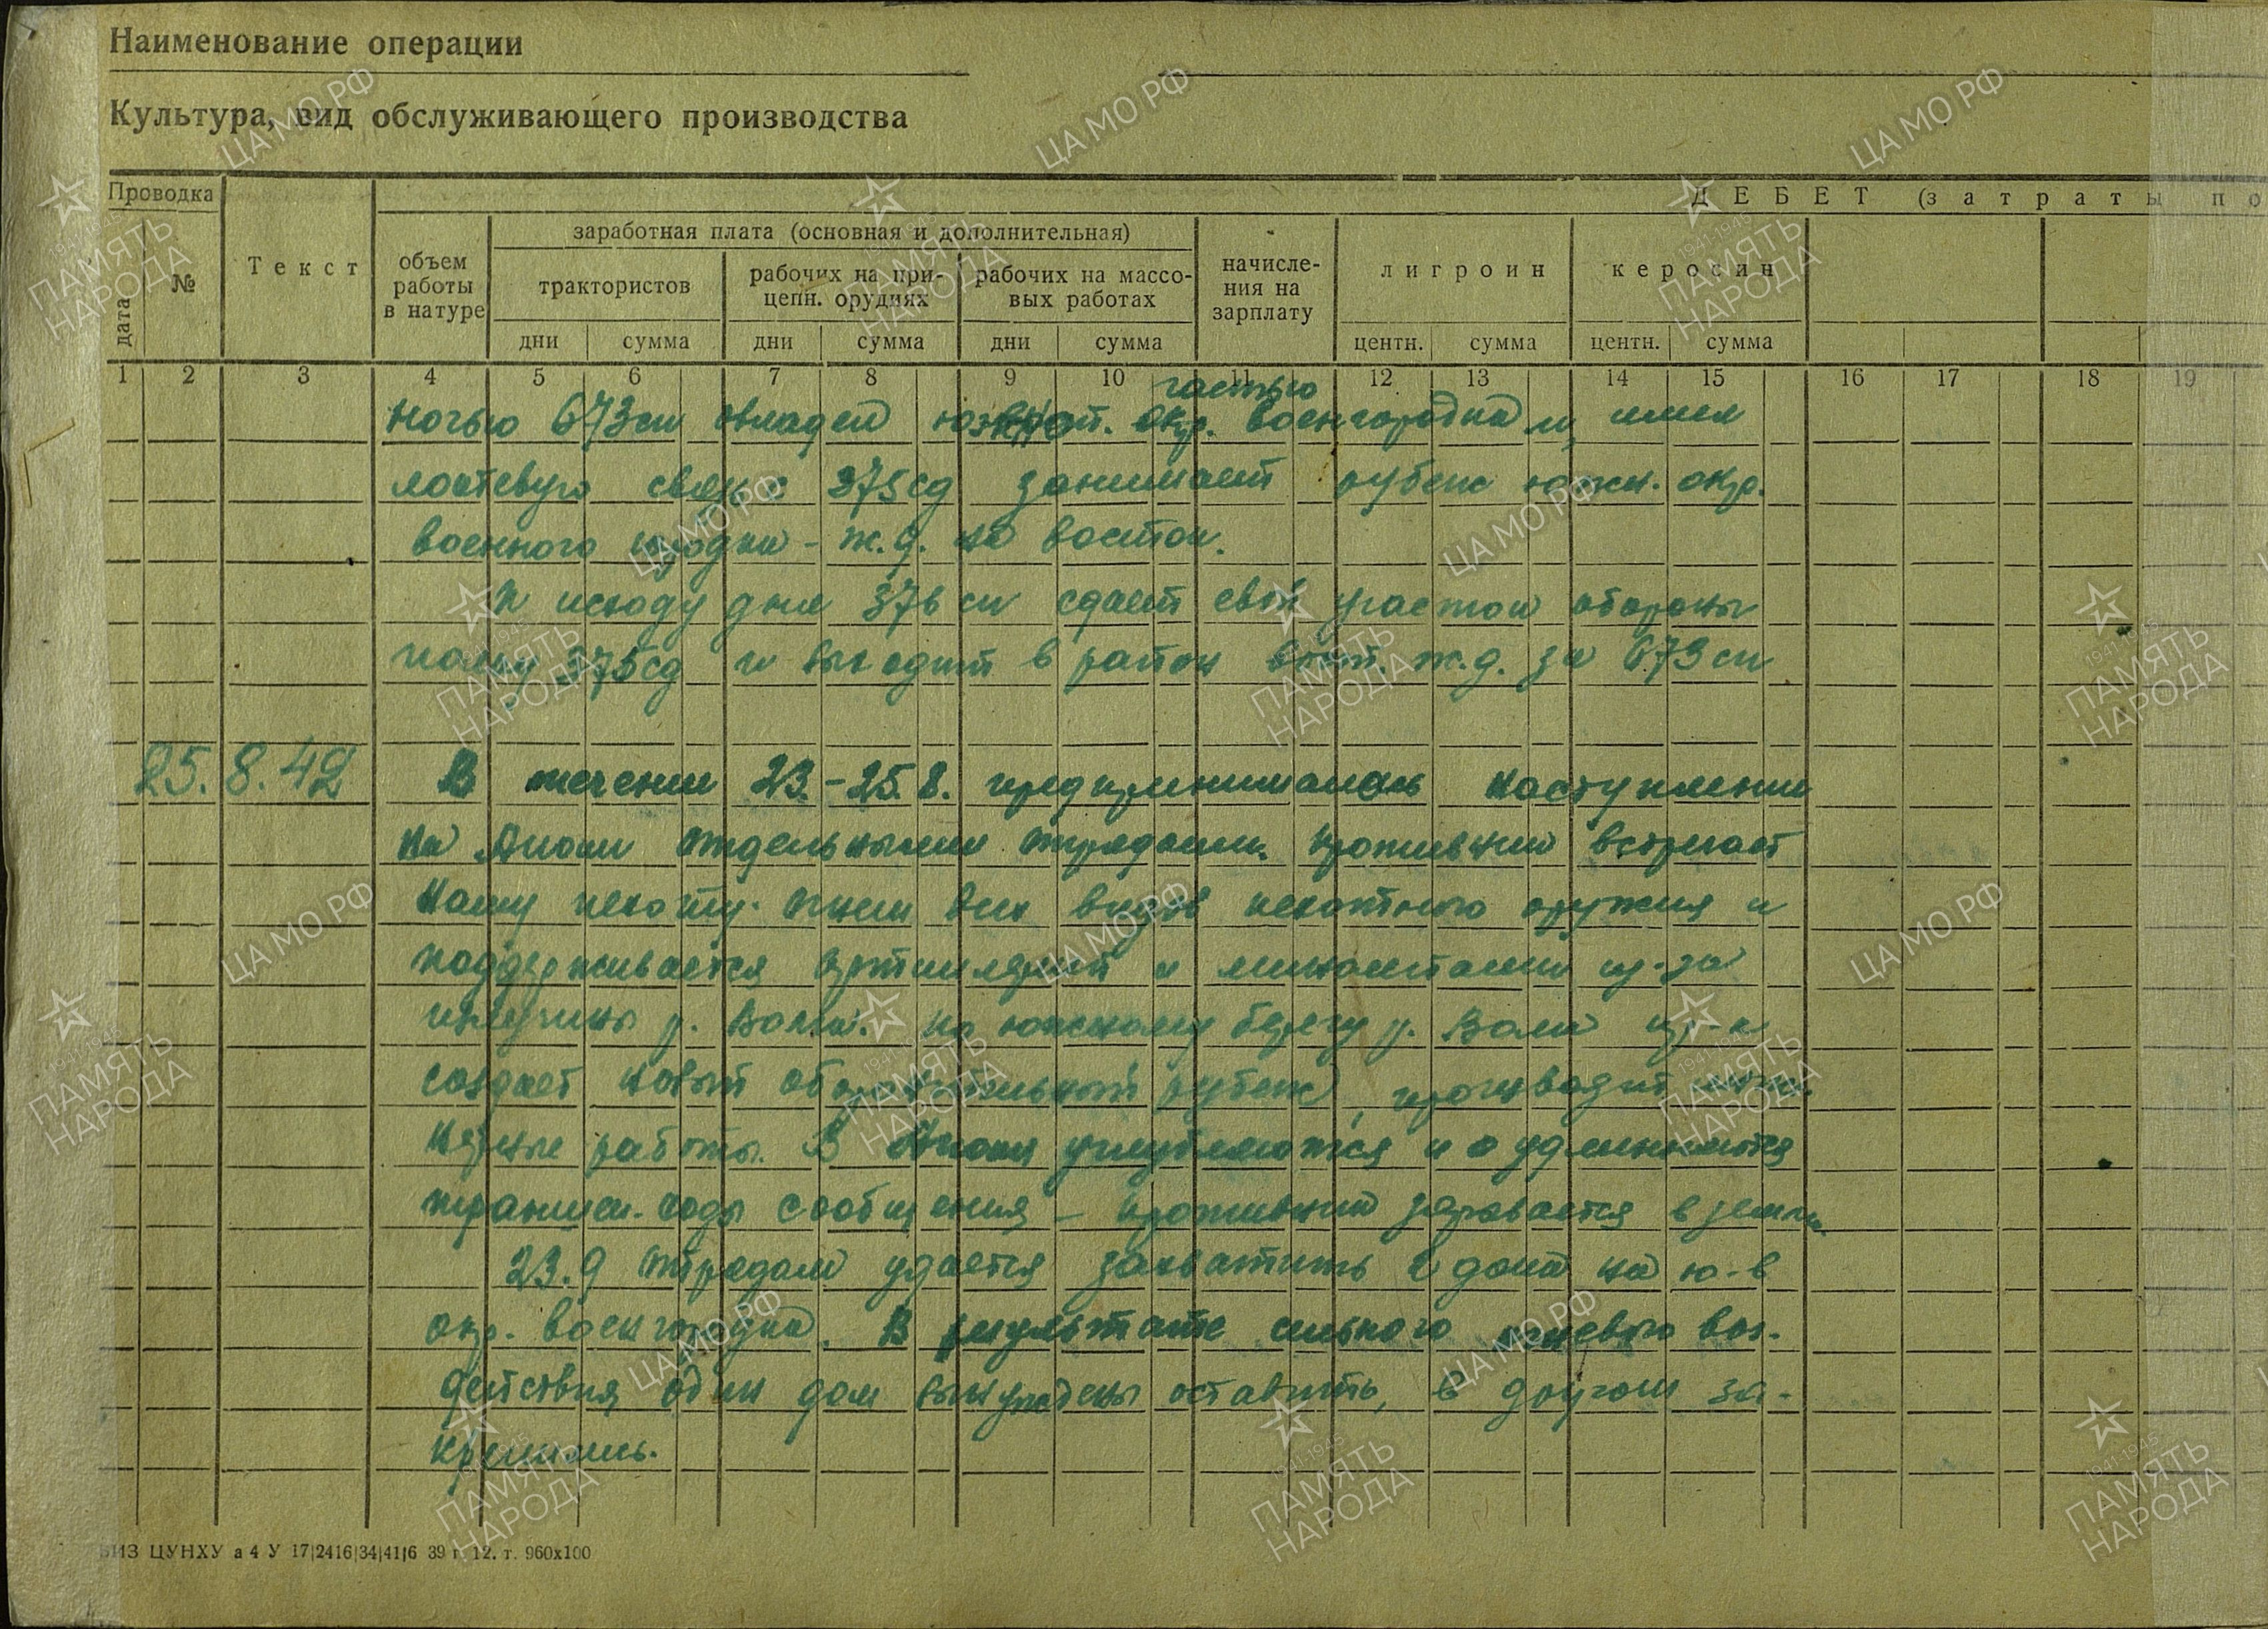 Наименование операции
Культура, вид обслуживающего производства
Проводка
ДЕБЕТ (затраты по
дата
№
Текст
объем работы в натуре
заработная плата (основная и дополнительная)
трактористов
рабочих на прицепн. орудиях
рабочих на массовых работах
начисления на зарплату
лигроин
керосин
дни сумма дни сумма дни сумма центн. сумма центн. сумма
1 2 3 4 5 6 7 8 9 10 11 12 13 14 15 16 17 18 19
частью
ночью 673 сп овладел окр. военгородка и, имея
локтевую связь с 375 сд занимает рубеж южн. окр.
военного городка - ж.д. на восток.
К исходу дня 376 сп сдает свой участок обороны
полку 375 сд и выходит в район вост. ж.д. за 673 сп
25.8.42 В течении 23.-25.8. предпринимались наступления
на отдельными отрядами. Противник встречает
нашу пехоту огнем всех видов пехотного оружия и
поддерживается артиллерией и минометами из-за
излучины р. Волга. По южному берегу р. Волга пр-к
создает новый оборонительный рубеж, производит
работы. В углубляются и удлиняются
траншеи. ходы сообщения - противник зарывается в землю.
23.9 отрядам удается захватить 2 дома на ю-в
окр. военгородка. В результате сильного огневого воз-
действия один дом вынуждены оставить, в другом за-
крепились.
БИЗ ЦУНХУ а 4 У 17|2416|34|41|6 39 г. 12. т. 960х100
ЦА МО РФ
1941-1945
ПАМЯТЬ
НАРОДА